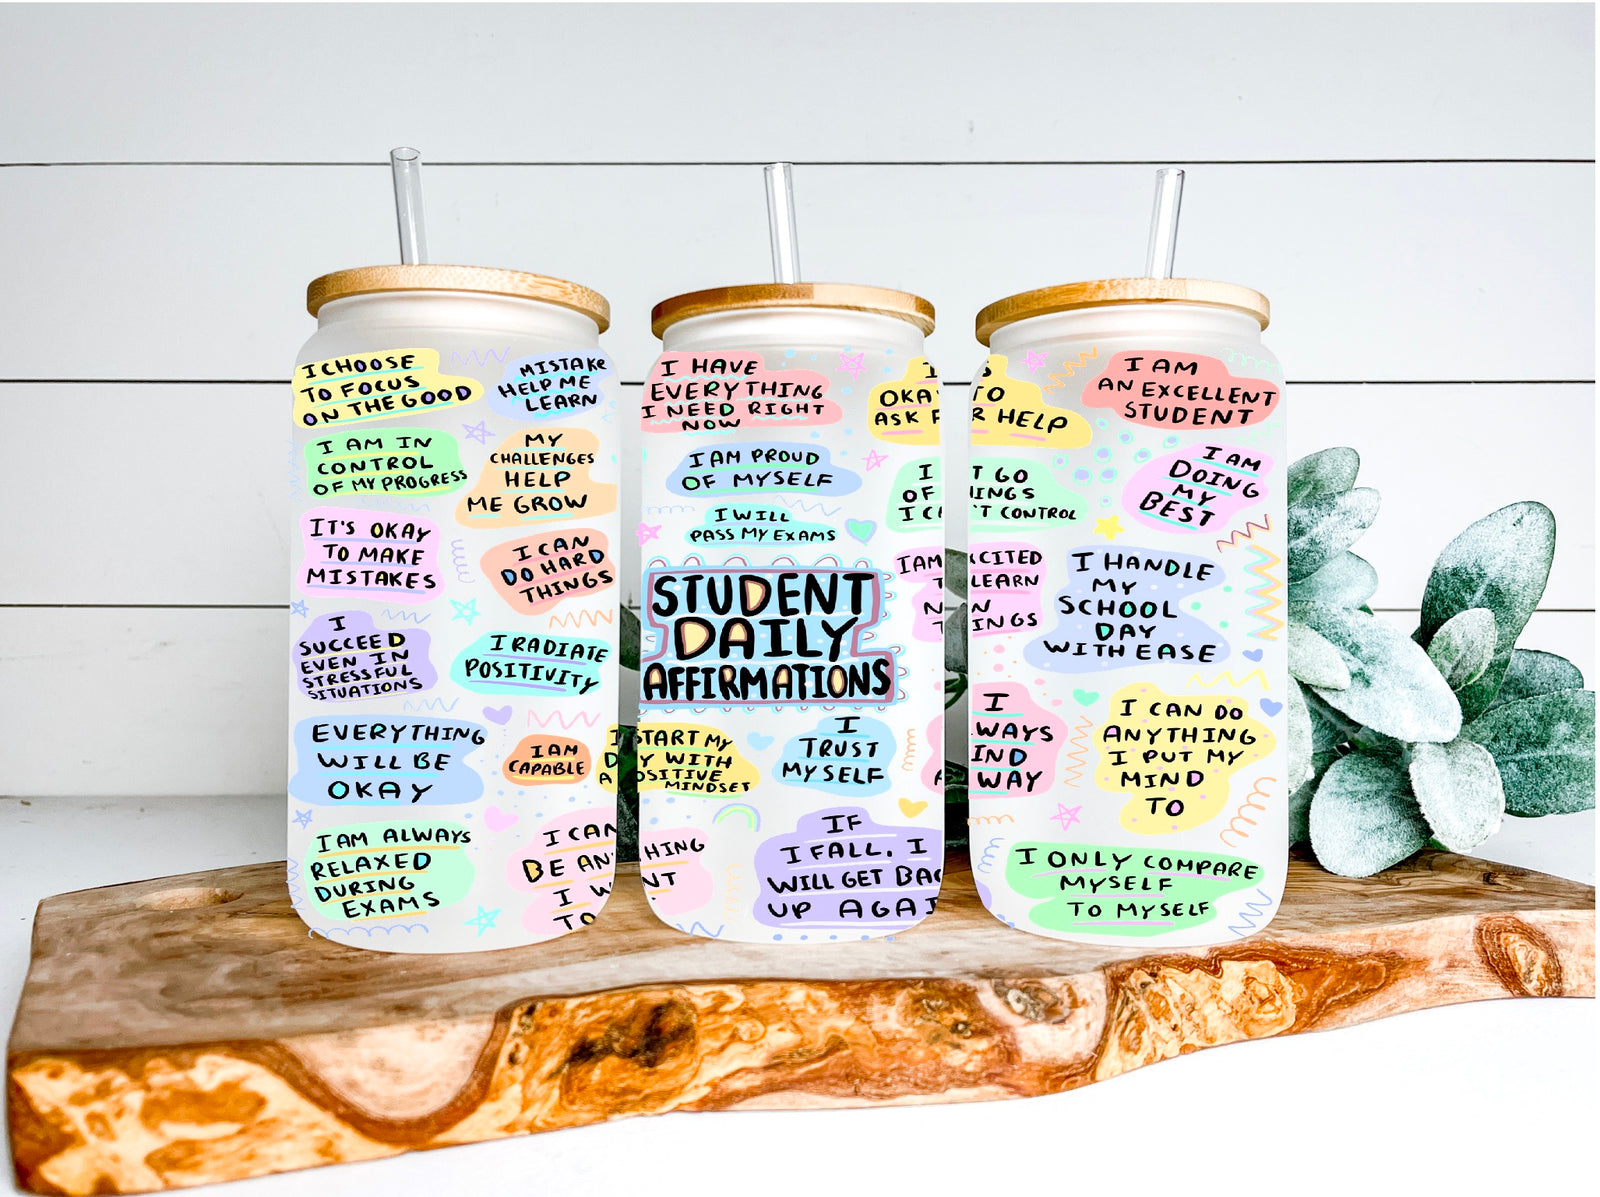 I CHOOSE
TO FOCUS
ON THE GOOD
MISTAKE
HELP ME
LEARN
I AM IN
CONTROL
OF MY PROGRESS
MY
CHALLENGES
HELP
ME GROW
IT'S OKAY
TO MAKE
MISTAKES
I CAN
DO HARD
THINGS
I
SUCCEED
EVEN IN
STRESSFUL
SITUATIONS
I RADIATE
POSITIVITY
EVERYTHING
WILL BE
OKAY
I AM
CAPABLE
I AM ALWAYS
RELAXED
DURING
EXAMS
I CAN
BE AN
I W
TO
I HAVE
EVERYTHING
I NEED RIGHT
NOW
OKA
ASK F
I AM PROUD
OF MYSELF
I
OF
I C
I WILL
PASS MY EXAMS
STUDENT
DAILY
AFFIRMATIONS
I AM
START MY
Y WITH
OSITIVE
MINDSET
I
TRUST
MYSELF
HING
NT
IF
I FALL, I
WILL GET BAC
UP AGAI
TO
R HELP
I AM
AN EXCELLENT
STUDENT
T GO
INGS
'T CONTROL
I AM
DOING
MY
BEST
XCITED
LEARN
N
INGS
I HANDLE
MY
SCHOOL
DAY
WITH EASE
I
WAYS
IND
WAY
I CAN DO
ANYTHING
I PUT MY
MIND
TO
I ONLY COMPARE
MYSELF
TO MYSELF